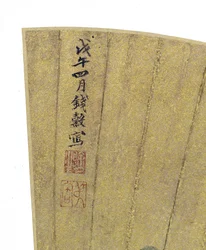 戊午四月錢穀寫